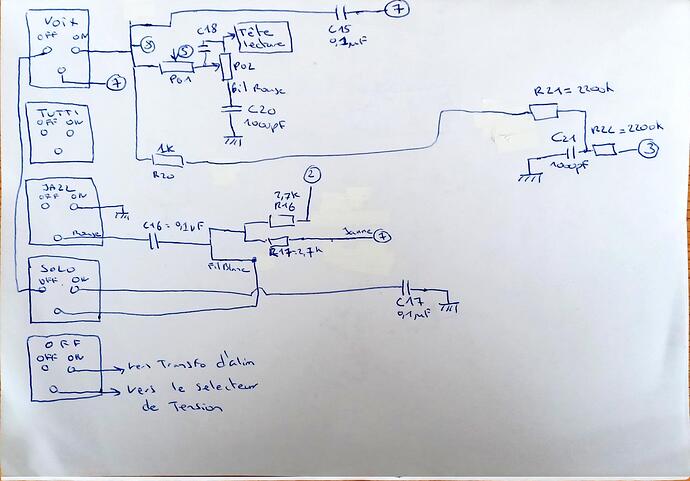 VOIX
OFF ON
7
8
5
P01
C18
Tête
lecture
P02
fil Rouge
C20
1000pF
C15
0,1µF
7
TUTTI
OFF ON
1K
R20
R21=2200K
C21
1000pF
R22=2200K
3
JAZZ
OFF ON
Rouge
C16=0,1µF
2,7K
R16
2
R17=2,7K
Jaune
7
Fil Blanc
SOLO
OFF ON
C17
0,1µF
OFF
OFF ON
vers Transfo d'alim
vers le selecteur
de Tension